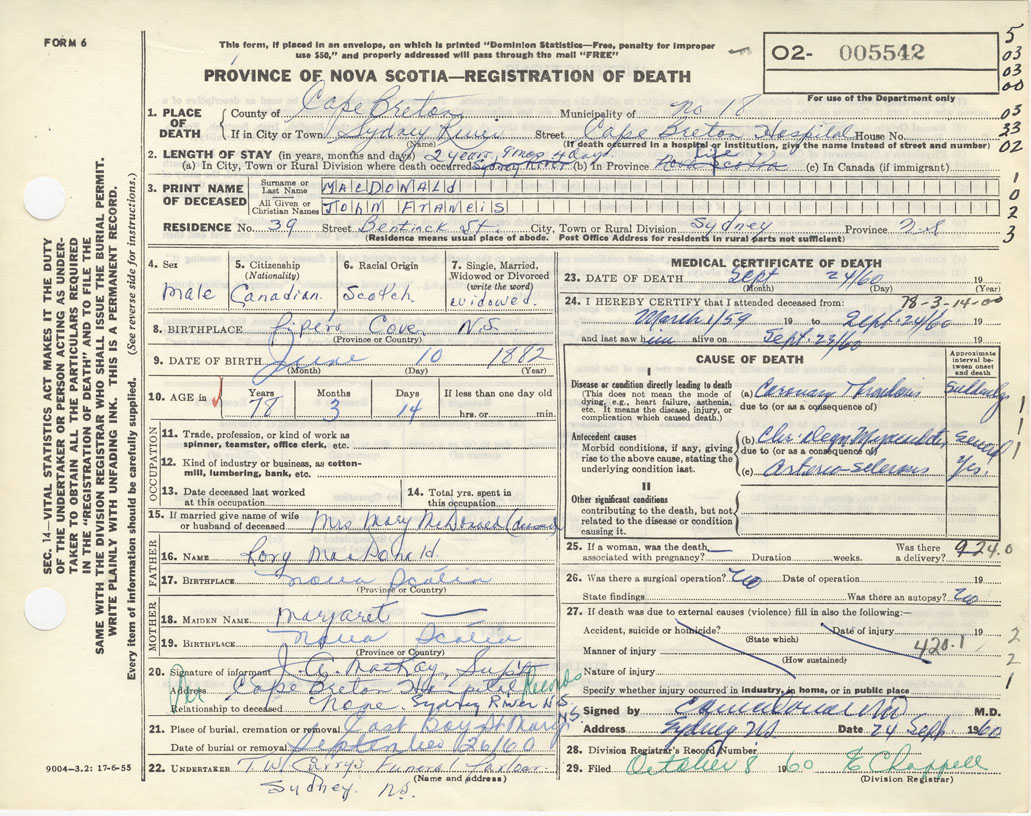 FORM 6
This form, if placed in an envelope, on which is printed "Dominion Statistics—Free, penalty for improper
use $50," and properly addressed will pass through the mail "FREE"
PROVINCE OF NOVA SCOTIA—REGISTRATION OF DEATH
02- 005542
For use of the Department only
5
03
03
00
03
33
02
1
0
2
3
1. PLACE OF DEATH County of Cape Breton Municipality of No 18
If in City or Town Sydney River Street Cape Breton Hospital House No.
(Name) (If death occurred in a hospital or institution, give the name instead of street and number)
2. LENGTH OF STAY (in years, months and days) 2 years 9 mos 4 days.
(a) In City, Town or Rural Division where death occurred Sydney River (b) In Province life Nova Scotia (c) In Canada (if immigrant)
3. PRINT NAME OF DECEASED Surname or Last Name MACDONALD
All Given or Christian Names JOHN FRANCIS
RESIDENCE No. 39 Street Bentinck St. City, Town or Rural Division Sydney Province N.S
(Residence means usual place of abode. Post Office Address for residents in rural parts not sufficient)
4. Sex Male
5. Citizenship (Nationality) Canadian
6. Racial Origin Scotch
7. Single, Married, Widowed or Divorced (write the word) Widowed.
8. BIRTHPLACE Pipers Cove N.S.
(Province or Country)
9. DATE OF BIRTH June 10 1882
(Month) (Day) (Year)
10. AGE in Years 78 Months 3 Days 14 If less than one day old hrs. or min.
OCCUPATION
11. Trade, profession, or kind of work as
spinner, teamster, office clerk, etc.
12. Kind of industry or business, as cotton-
mill, lumbering, bank, etc.
13. Date deceased last worked
at this occupation
14. Total yrs. spent in
this occupation
15. If married give name of wife
or husband of deceased Mrs Mary
FATHER
16. NAME Rory MacDonald.
17. BIRTHPLACE Nova Scotia
(Province or Country)
MOTHER
18. MAIDEN NAME Margaret —
19. BIRTHPLACE Nova Scotia
(Province or Country)
20. Signature of informant J. A. MacKay, Supt
Address Per Cape Breton Hospital Records
Relationship to deceased None. Sydney River N.S.
21. Place of burial, cremation or removal East Bay St Marys N.S.
Date of burial or removal September 26/60
22. UNDERTAKER T.W. Currys Funeral Parlour.
(Name and address)
Sydney. N.S.
MEDICAL CERTIFICATE OF DEATH
23. DATE OF DEATH Sept 24/60 19
(Month) (Day)
24. I HEREBY CERTIFY that I attended deceased from: 78-3-14-00
March 1/59 19 to Sept 24/60 19
and last saw him alive on Sept. 23/60 19
CAUSE OF DEATH
Approximate interval between onset and death
I
Disease or condition directly leading to death
(This does not mean the mode of dying, e.g., heart failure, asthenia, etc. It means the disease, injury, or complication which caused death.)
(a) Coronary Thrombosis Suddenly
due to (or as a consequence of)
Antecedent causes
Morbid conditions, if any, giving rise to the above cause, stating the underlying condition last.
(b) Chr. Degn. Myocarditis, Several
due to (or as a consequence of)
(c) Arterio-sclerosis Yrs.
1
1
1
II
Other significant conditions
contributing to the death, but not related to the disease or condition causing it.
25. If a woman, was the death
associated with pregnancy? Duration weeks. Was there a delivery? 924.0
26. Was there a surgical operation? No Date of operation 19
State findings Was there an autopsy? No
27. If death was due to external causes (violence) fill in also the following:—
Accident, suicide or homicide? Date of injury 19
(State which)
Manner of injury 420.1
(How sustained)
Nature of injury
Specify whether injury occurred in industry, in home, or in public place
2
2
1
Signed by M.D.
Address Sydney N.S. Date 24 Sept. 1960
28. Division Registrar's Record Number
29. Filed October 8 1960 Chappell
(Division Registrar)
SEC. 14—VITAL STATISTICS ACT MAKES IT THE DUTY
OF THE UNDERTAKER OR PERSON ACTING AS UNDER-
TAKER TO OBTAIN ALL THE PARTICULARS REQUIRED
IN THE "REGISTRATION OF DEATH" AND TO FILE THE
SAME WITH THE DIVISION REGISTRAR WHO SHALL ISSUE THE BURIAL PERMIT.
WRITE PLAINLY WITH UNFADING INK. THIS IS A PERMANENT RECORD.
Every item of information should be carefully supplied. (See reverse side for instructions.)
9004-3.2: 17-6-55